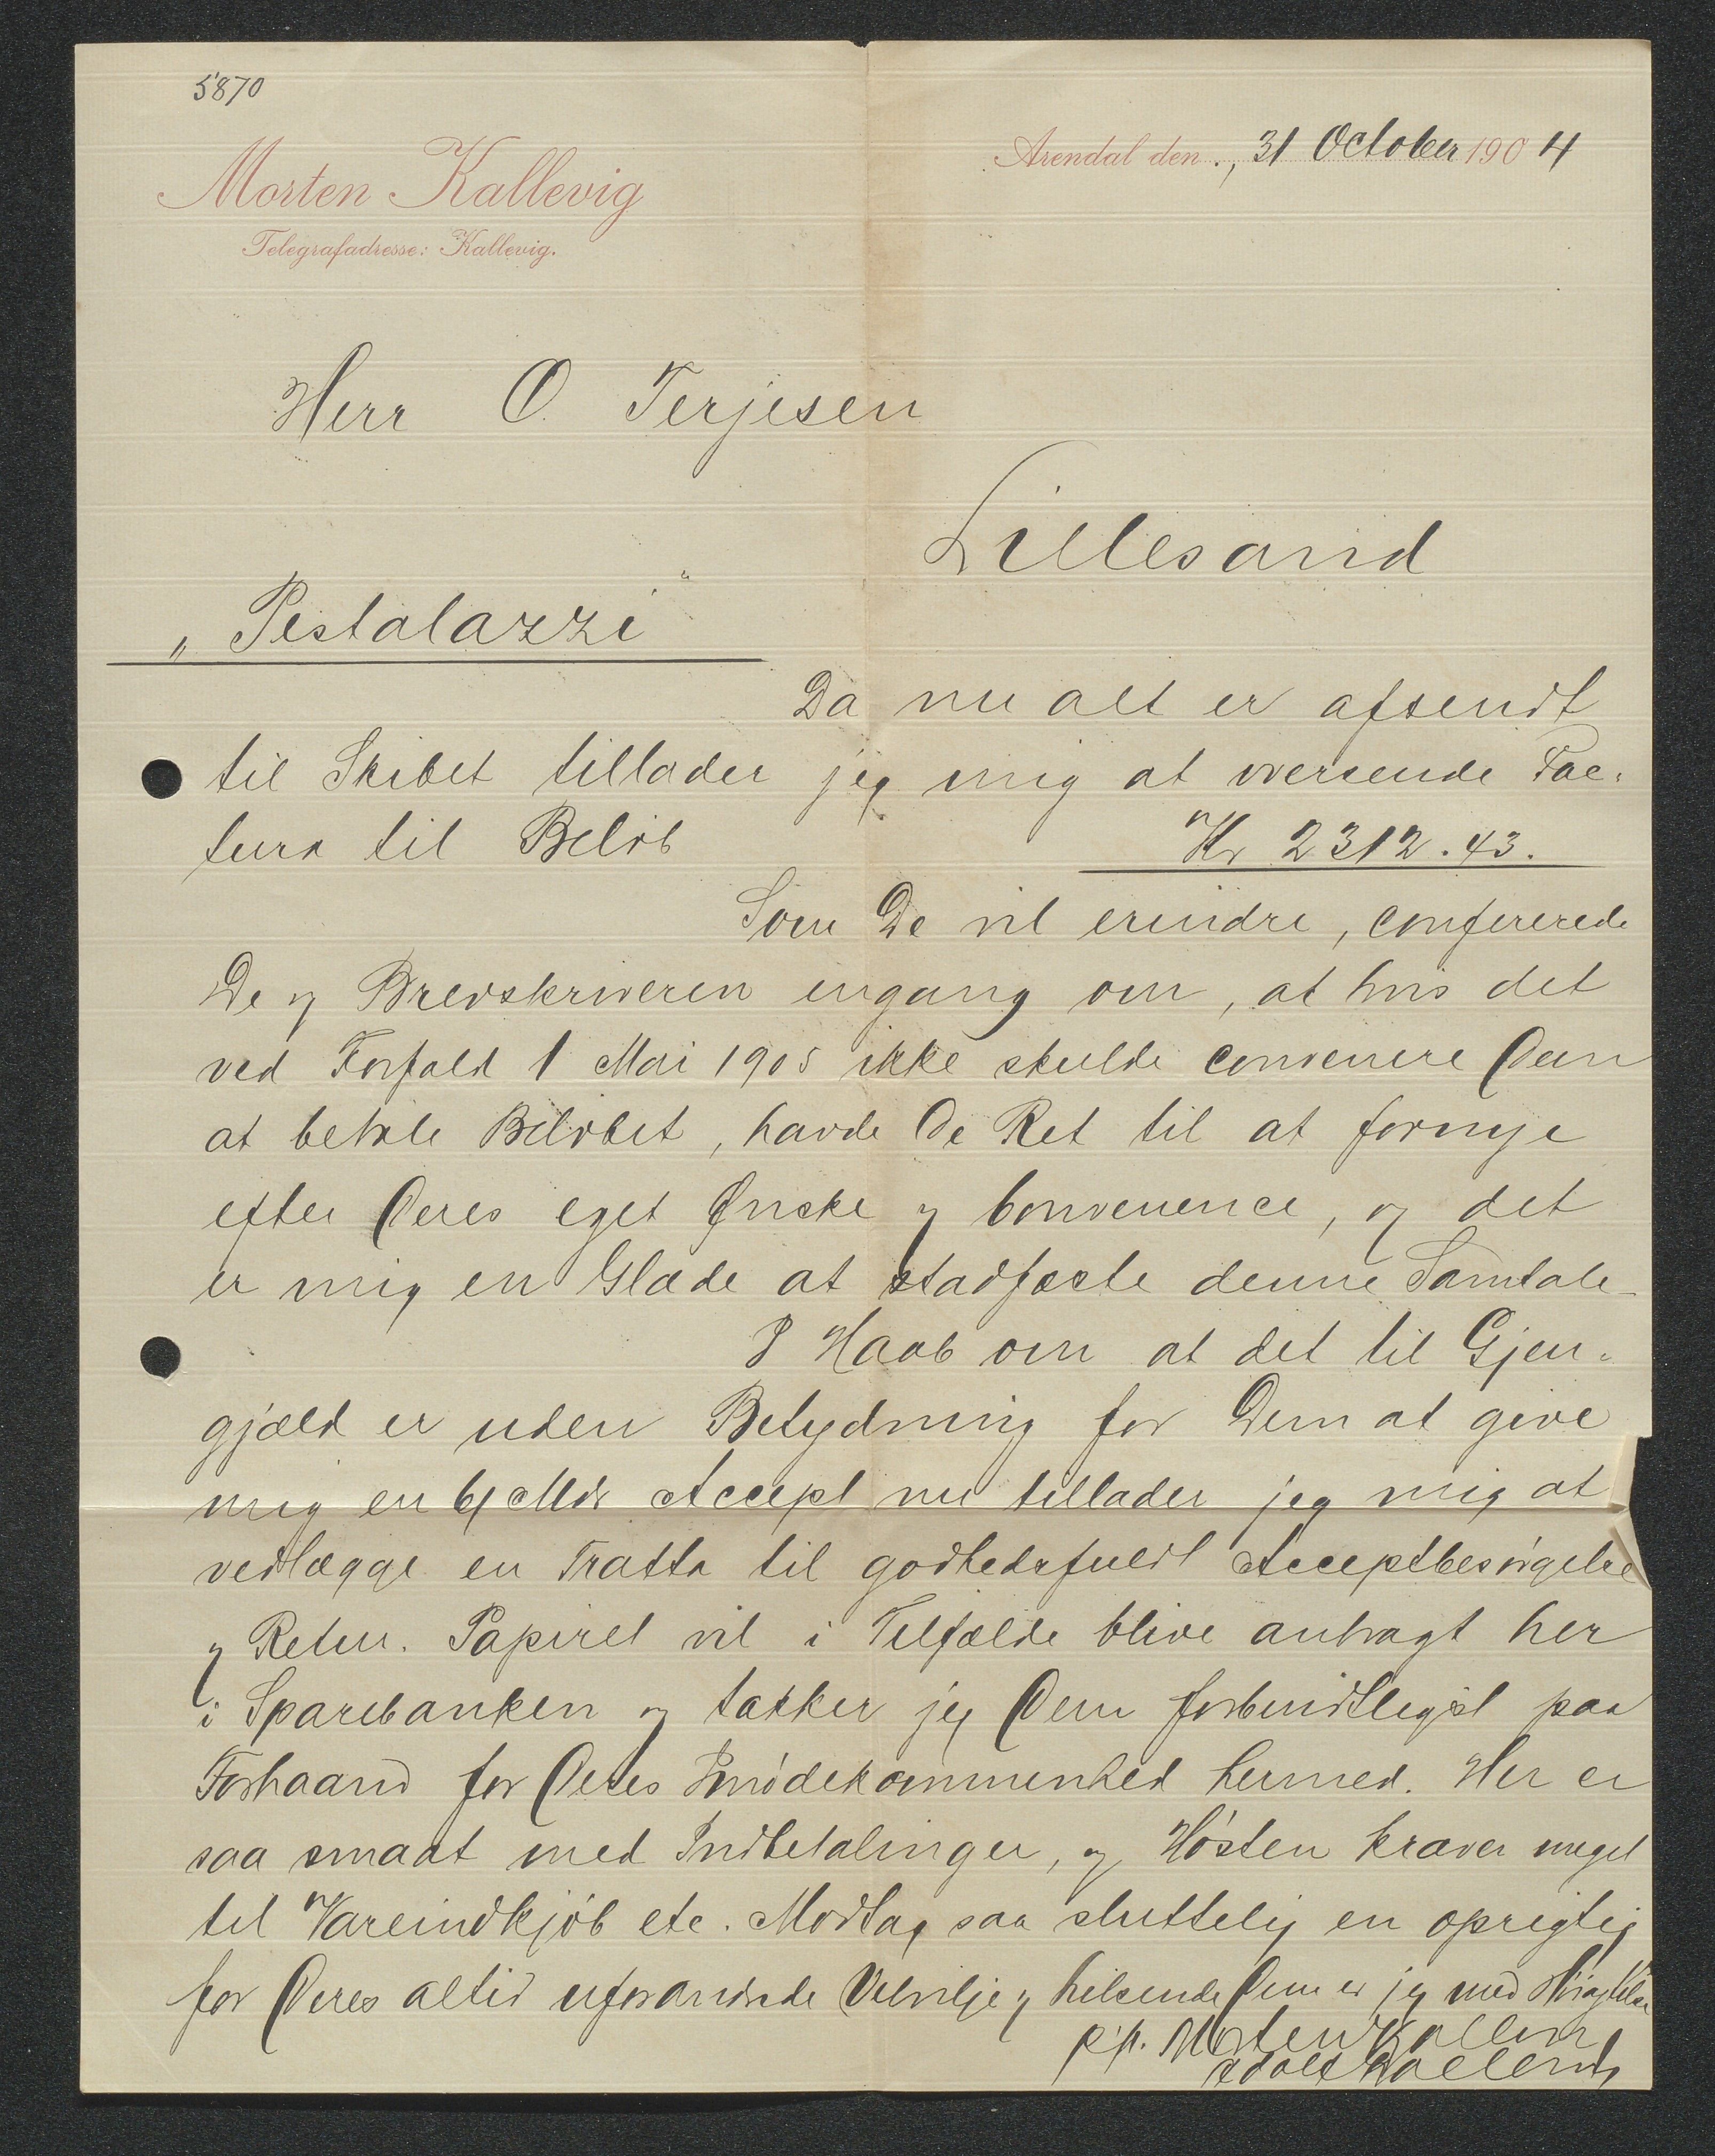 5870
Morten Kallevig
Telegrafadresse: Kallevig.
Arendal den ., 31 October 1904
Herr O. Terjesen
Lillesand
„Pestalazzi"
Da nu alt er afsendt
til Skibet tillader jeg mig at oversende Fac-
tura til Beløb Kr 2312.43.
Som De vil erindre, confererede
De og Brevskriveren engang om, at hvis det
ved Forfald 1 Mai 1905 ikke skulde convenere Dem
at betale Beløbet, havde De Ret til at fornye
efter Deres eget Ønske og Convenence, og det
er mig en Glæde at stadfæste denne Samtale
I Haab om at det til Gjen-
gjæld er uden Betydning for Dem at give
mig en 6 Mdr Accept nu tillader jeg mig at
vedlægge en Tratta til godhedsfuldt Acceptbesørgelse
og Retur. Papiret vil i Tilfælde blive anbragt her
i Sparebanken og takker jeg Dem forbindtligst paa
Forhaand for Deres Imødekommenhed hermed. Her er
saa smaat med Indbetalinger, og Høsten kræver meget
til Vareindkjøb etc. Modtag saa sluttelig en oprigtig
for Deres altid uforandrede Velvilje og hilsende Dem er jeg med Høiagtelse
p.p. Morten Kallevig
Adolf Kallevig